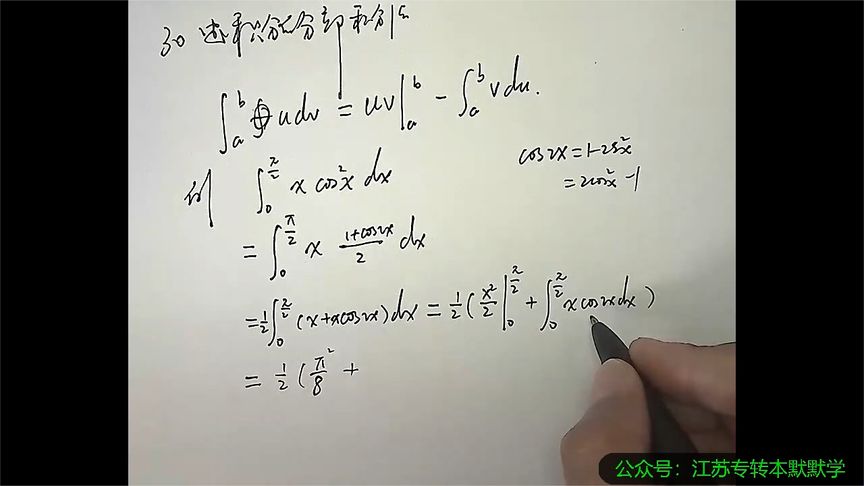 3° 定积分的分部积分法
∫_a^b u dv = uv|_a^b - ∫_a^b v du.
例 ∫_0^{π/2} x cos²x dx
cos2x = 1-2s²x
= 2cos²x -1
= ∫_0^{π/2} x (1+cos2x)/2 dx
= 1/2 ∫_0^{π/2} (x+xcos2x) dx = 1/2 ( x²/2 |_0^{π/2} + ∫_0^{π/2} x cos2x dx )
= 1/2 ( π²/8 +
公众号：江苏专转本默默学